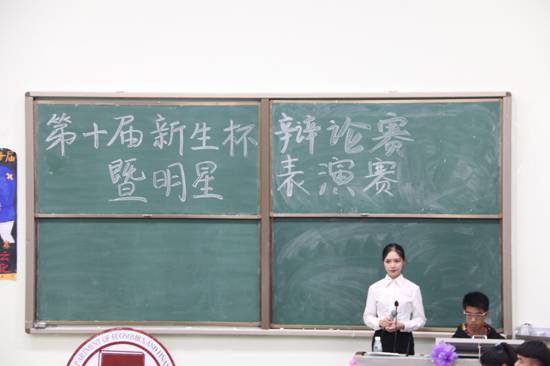 第十届新生杯 辩论赛
暨明星 表演赛
DEPARTMENT OF ECONOMICS AND FINAN